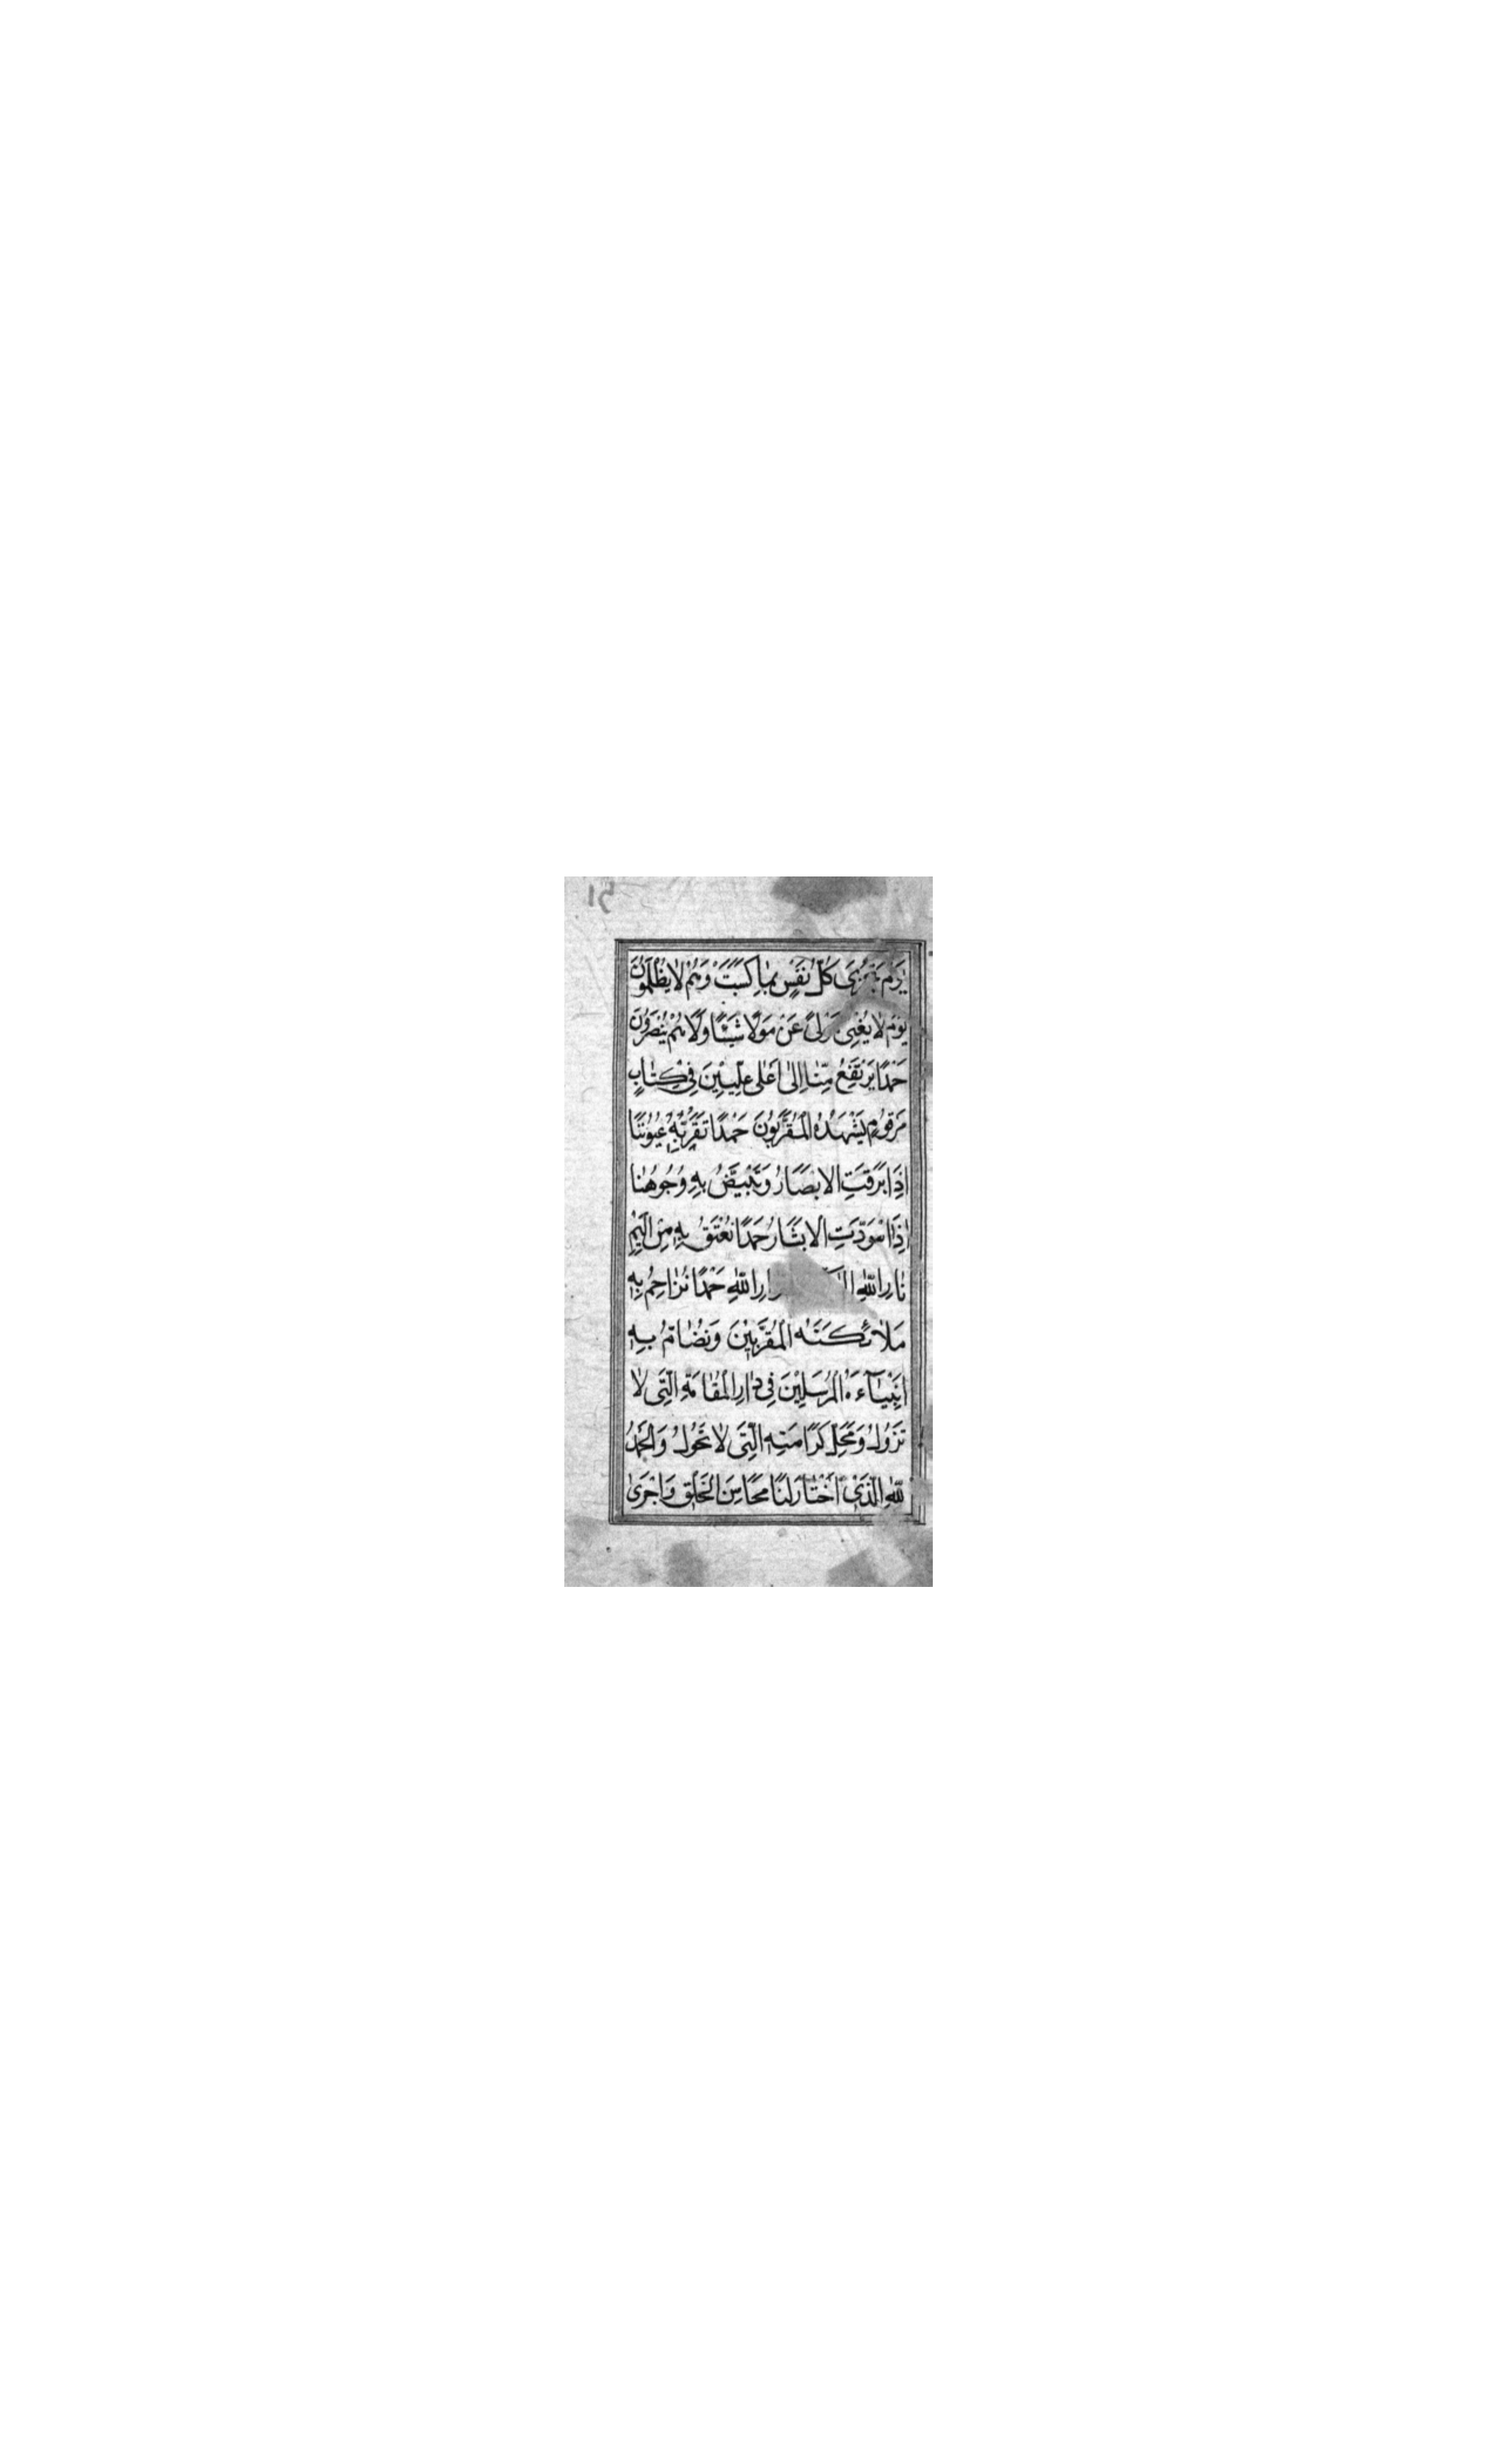 يَوْمَ تُجْزٰى كُلُّ نَفْسٍ بِمٰا كَسَبَتْ وَهُمْ لٰا يُظْلَمُوُنَ
يَوْمَ لٰا يُغْنِىٖ مَوْلىً عَنْ مَوْلًا شَيْئًا وَلٰا هُمْ يُنْصَرُوُنَ
حَمْدًا يَرْتَفِعُ مِنّٰا اِلىٰ اَعْلىٰ عِلِّيٖيٖنَ فِىٖ كِتٰابٍ
مَرْقوُمٍ يَشْهَدُهُ الْمُقَرَّبوُنَ حَمْدًا تَقَرُّ بِهٖ عُيوُنُنٰا
اِذٰا بَرِقَتِ الْابْصٰارُ وَتَبْيَضُّ بِهٖ وُجُوهُنٰا
اِذَا سْوَدَّتِ الْابْشٰارُ حَمْدًا نُعْتَقُ بِهٖ مِنْ اَلٖيمِ
نٰارِ اللّٰهِ اِلىٰ ارِ اللّٰهِ حَمْدًا نُزٰاحِمُ بِهٖ
مَلٰائِكَتَهُ الْمُقَرَّبيٖنَ وَنُضٰامُّ بِهٖ
اَنْبِيٰآءَهُ الْمُرْسَليٖنَ فِىٖ دٰارِ الْمُقٰامَةِ الَّتىٖ لٰا
تَزُولُ وَمَحَلِّ كَرٰامَتِهِ الَّتىٖ لٰا تَحُولُ وَالْحَمْدُ
لِلّٰهِ الَّذىٖ اخْتٰارَ لَنٰا مَحٰاسِنَ الْخَلْقِ وَاَجْرىٰ